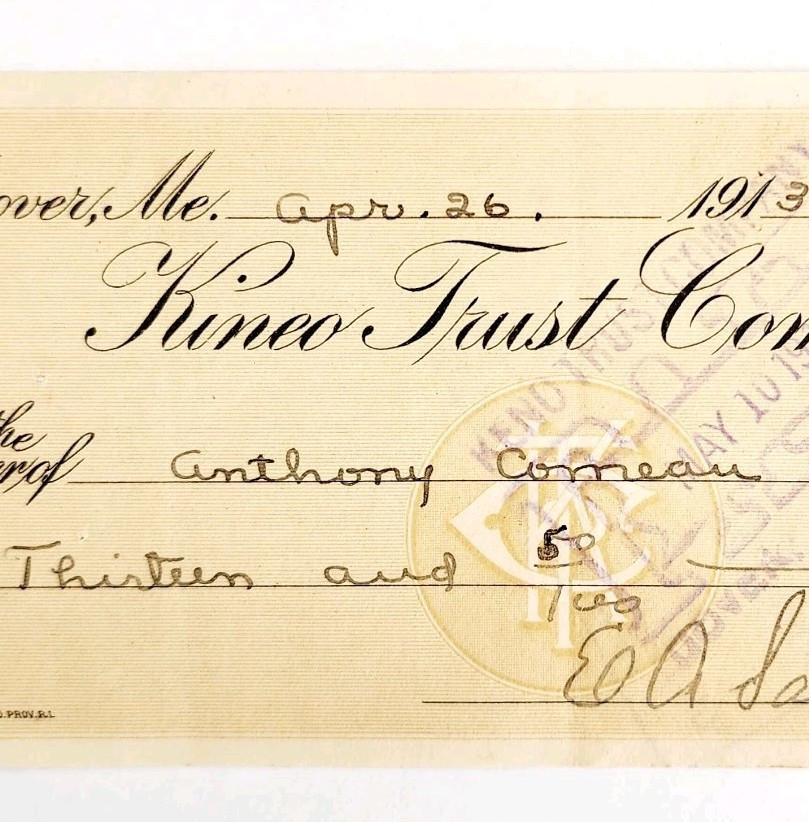 over, Me. Apr. 26. 1913
Kineo Trust Com
the
er of Anthony Comeau
Thirteen and 50/100
E A Sa
O. PROV. R.I.
KENO TRUST COMPANY
MAY 10 19
Dover,